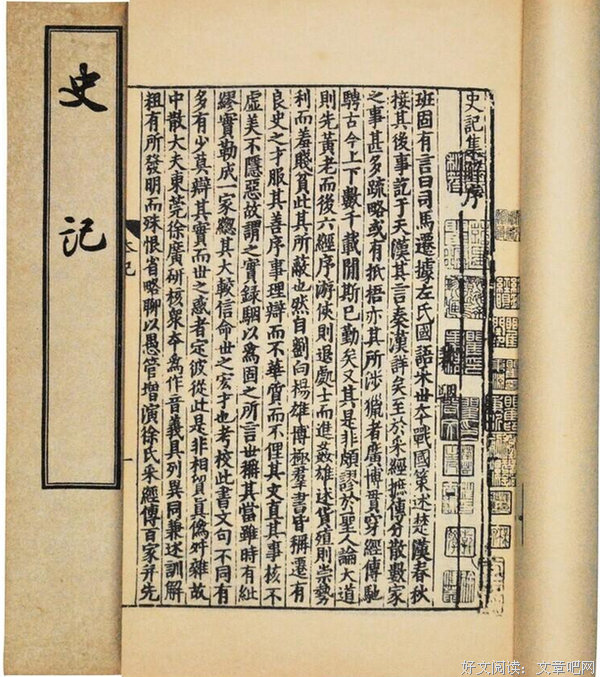 史記
史記集解序
班固有言曰司馬遷據左氏國語采世夲戰國策述楚漢春秋
接其後事訖于天漢其言秦漢詳矣至於采經摭傳分散數家
之事甚多疏略或有抵捂亦其所涉獵者廣博貫穿經傳馳
騁古今上下數千載閒斯已勤矣又其是非頗謬於聖人論大道
則先黃老而後六經序游俠則退處士而進姦雄述貨殖則崇勢
利而羞賤貧此其所蔽也然自劉向楊雄博極羣書皆稱遷有
良史之才服其善序事理辯而不華質而不俚其文直其事核不
虛美不隱惡故謂之實録駰以爲固之所言世稱其當雖時有紕
繆實勒成一家緫其大較信命世之宏才也考校此書文句不同有
多有少莫辯其實而世之惑者定彼從此是非相貿真僞舛雜故
中散大夫東莞徐廣研核衆夲爲作音義具列異同兼述訓解
粗有所發明而殊恨省略聊以愚管增演徐氏采經傳百家幷先
好文阅读：文章吧网